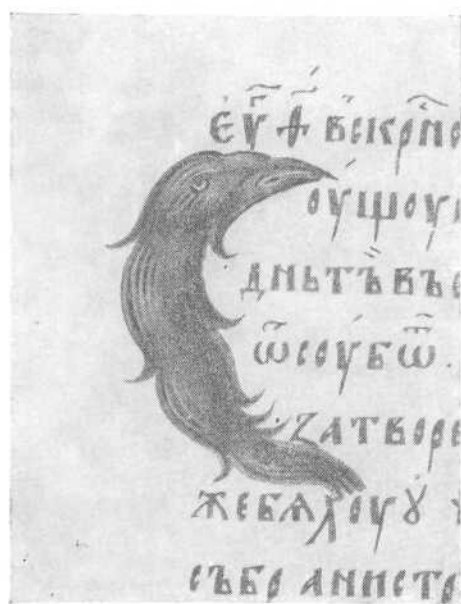 еѵⷢ҇ ꙗ҃ в̾скрⷭ҇нс
оущоу
днь тъ въ
ѿ соубѿ .
затворе
же бѧхоу ꙋ
събранистр